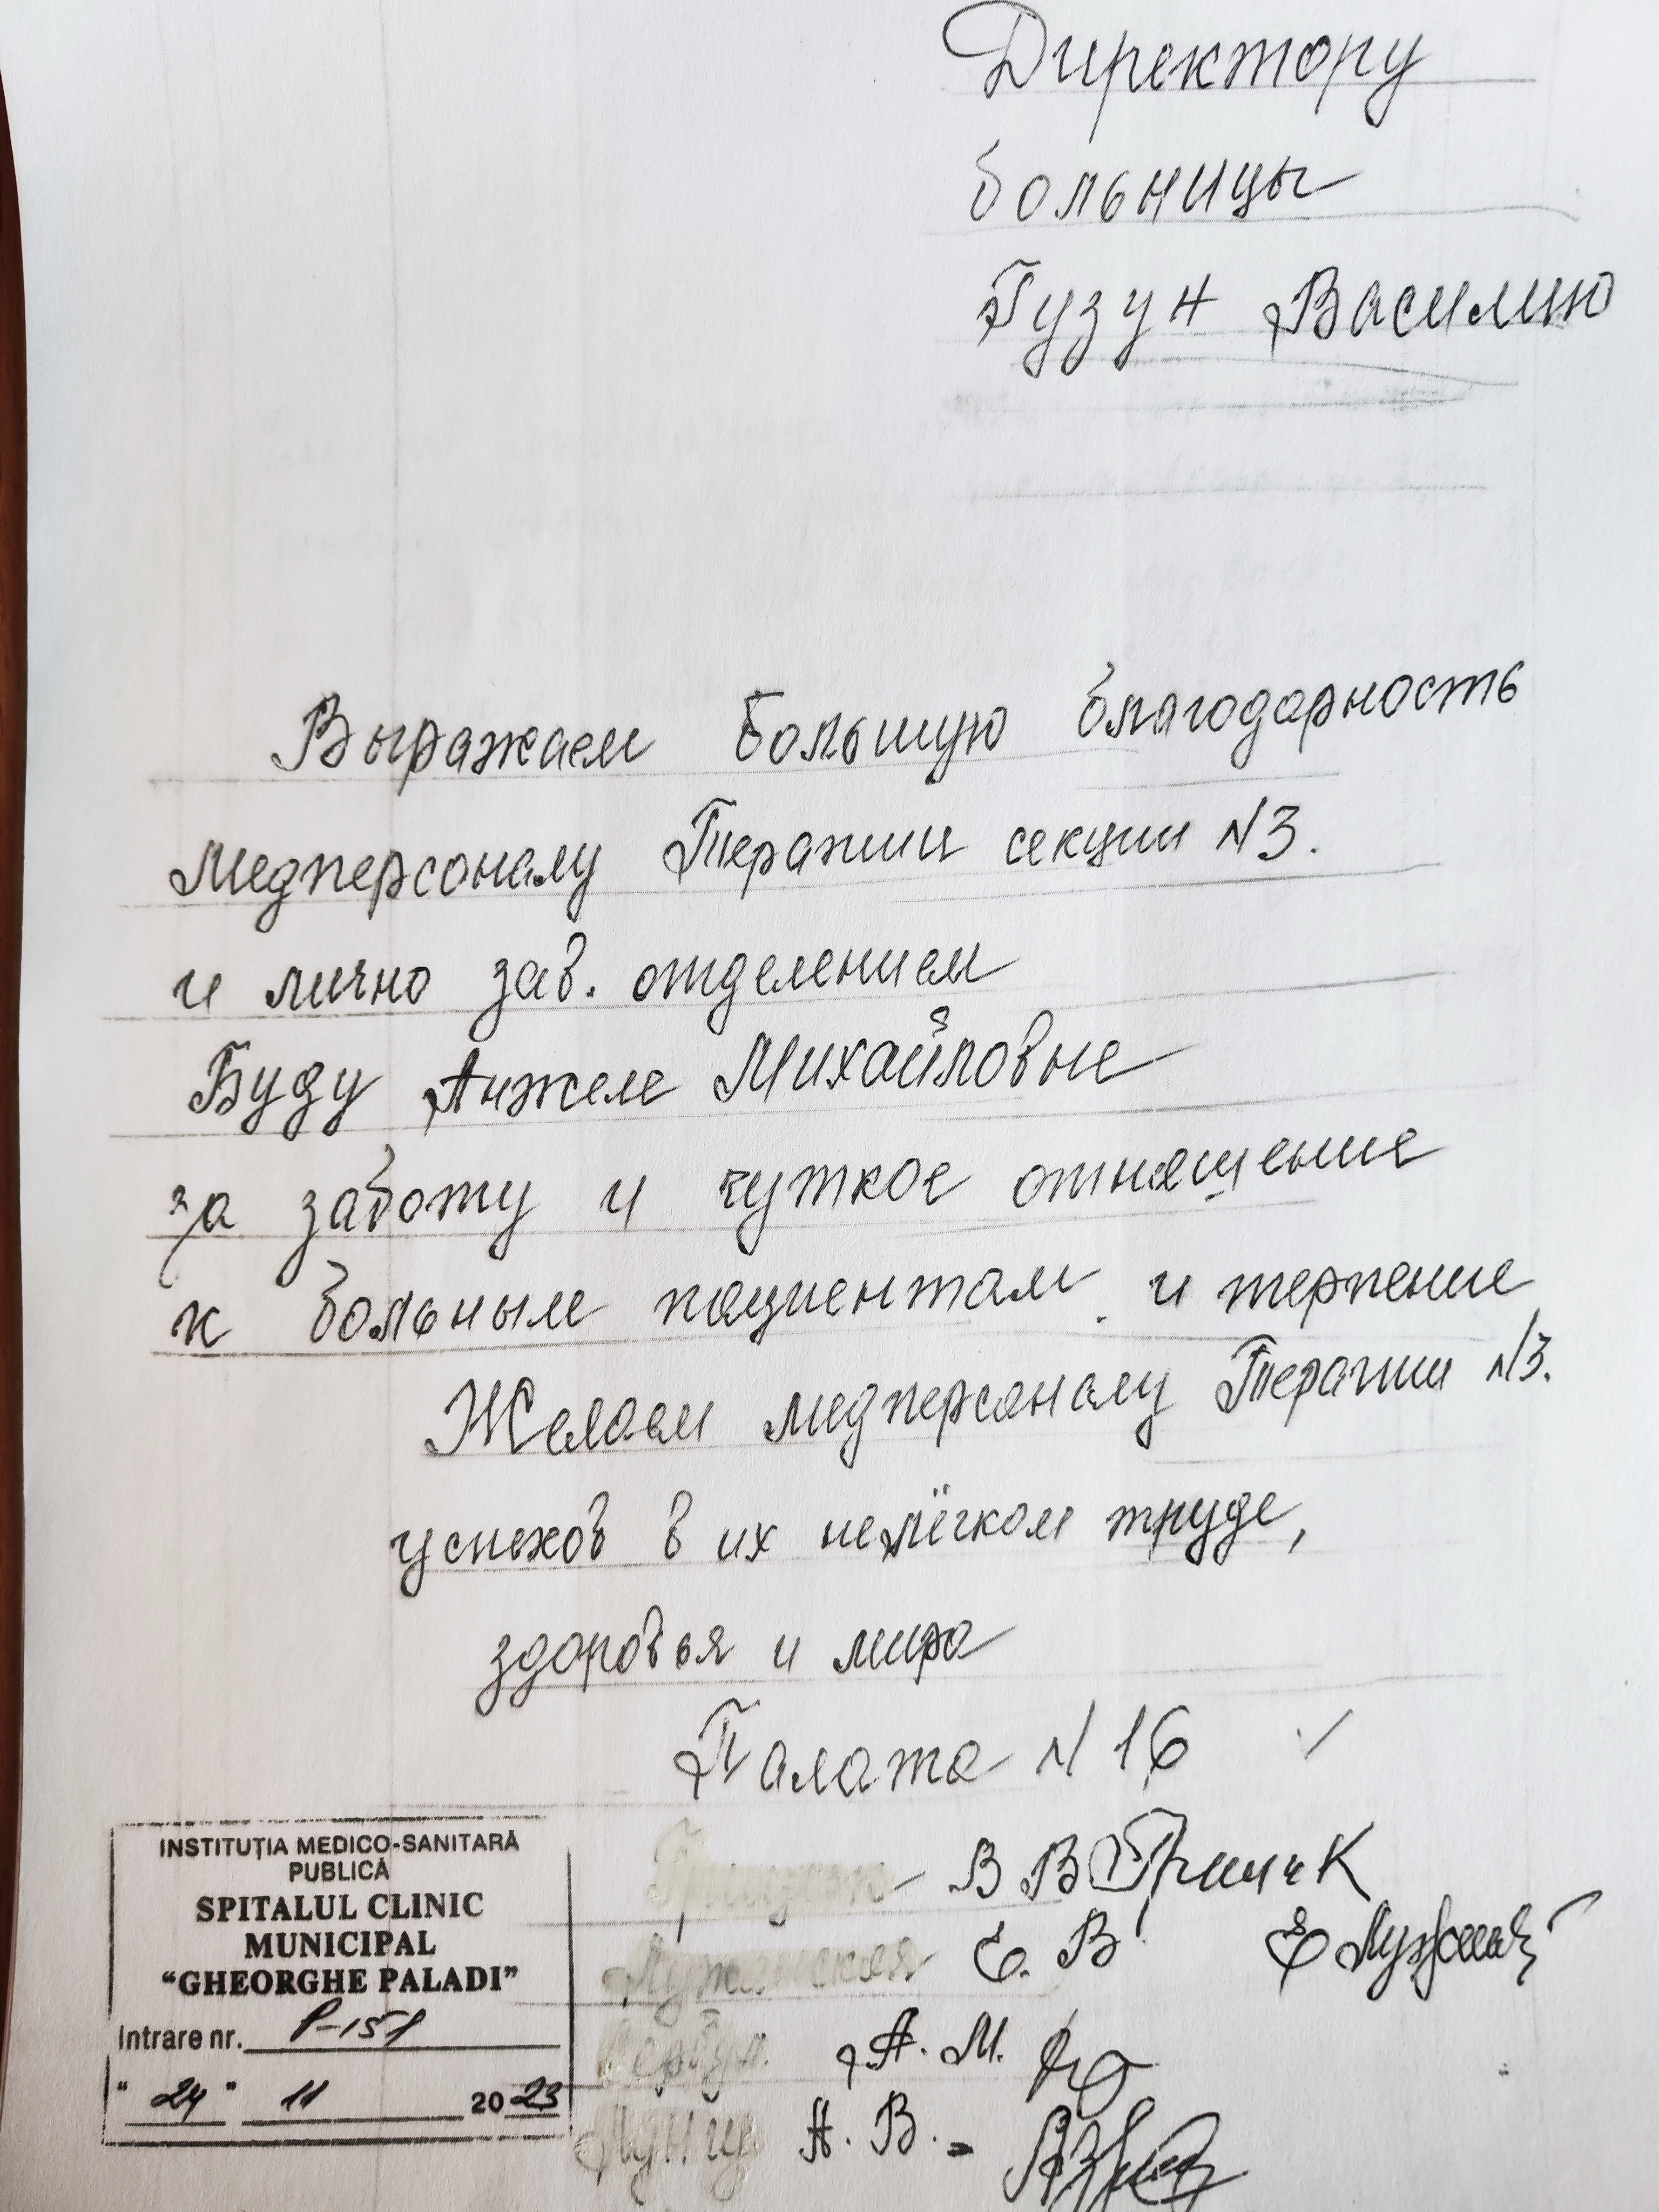 Директору
больницы
Гузун Василию
Выражаем большую благодарность
Медперсоналу Терапии секции N3.
и лично зав. отделением
Буду Анжеле Михайловне
за заботу и чуткое отнящение
к больным пациентам и терпение
Желаем медперсоналу Терапии N3.
успехов в их нелёгком труде,
здоровья и мира
Палата N 16
В В
Е. В
А. М.
А. В. -
INSTITUȚIA MEDICO-SANITARĂ
PUBLICĂ
SPITALUL CLINIC
MUNICIPAL
"GHEORGHE PALADI"
Intrare nr. P-151
"24" 11 2023